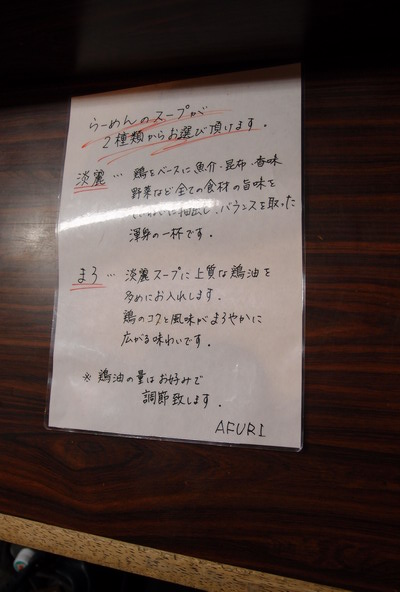 らーめんのスープが
2種類からお選び頂けます.
淡麗… 鶏をベースに魚介・昆布・香味
野菜など全ての食材の旨味を
抽出し、バランスを取った
渾身の一杯です.
まろ… 淡麗スープに上質な鶏油を
多めにお入れします.
鶏のコクと風味がまろやかに
広がる味わいです.
※ 鶏油の量はお好みで
調節致します.
AFURI